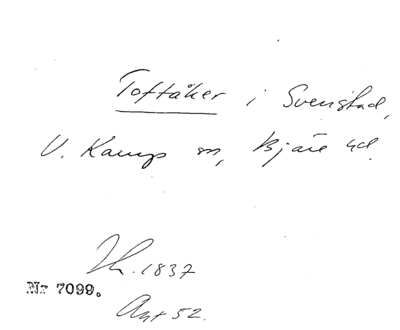 Toftåker i Svenstad,
V. Karup sn, Bjäre hd.
Sk. 1837
Nr 7099.
Akt 52.